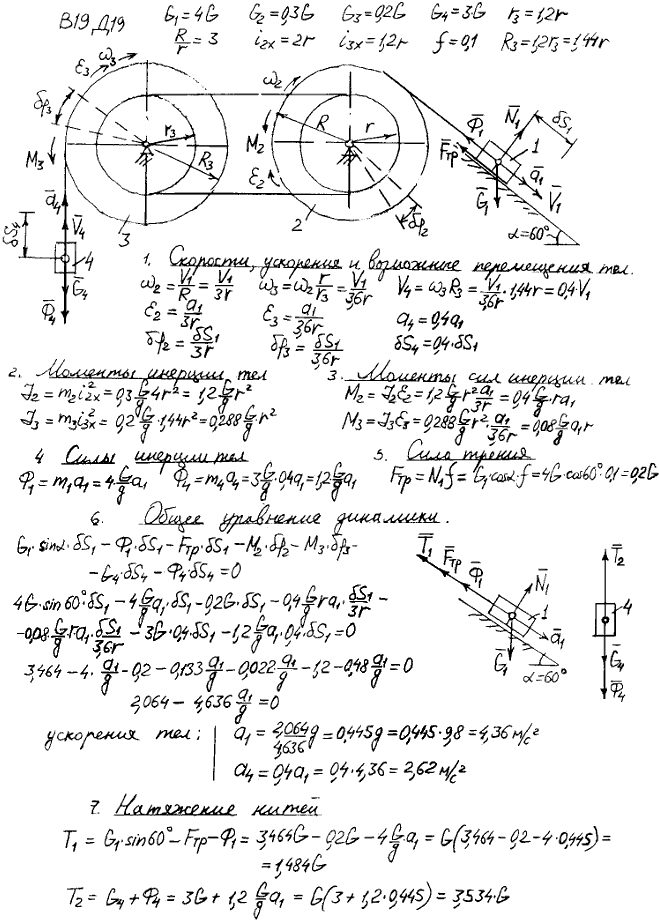 В19 Д19
G₁=4G G₂=0,3G G₃=0,2G G₄=3G r₃=1,2r
R/r = 3 i₂ₓ=2r i₃ₓ=1,2r f=0,1 R₃=1,2r₃=1,44r
ε₃ ω₃
δφ₃
M₃
r₃
R₃
3
ω₂
R
r
M₂
ε₂
2
δφ₂
Φ̄₁
F̄тр
N̄₁
δS₁
1
ā₁
V̄₁
Ḡ₁
α=60°
ā₄
V̄₄
δS₄
4
Ḡ₄
Φ̄₄
1. Скорости, ускорения и возможные перемещения тел.
ω₂=V₁/R=V₁/3r ω₃=ω₂ r/r₃=V₁/3,6r V₄=ω₃R₃=V₁/3,6r·1,44r=0,4V₁
ε₂=a₁/3r ε₃=a₁/3,6r a₄=0,4a₁
δφ₂=δS₁/3r δφ₃=δS₁/3,6r δS₄=0,4·δS₁
2. Моменты инерции тел 3. Моменты сил инерции тел
J₂=m₂i₂ₓ²=0,3 G/g 4r²=1,2 G/g r² M₂=J₂ε₂=1,2 G/g r² a₁/3r=0,4 G/g ra₁
J₃=m₃i₃ₓ²=0,2 G/g·1,44r²=0,288 G/g r² M₃=J₃ε₃=0,288 G/g r²·a₁/3,6r=0,08 G/g a₁r
4 Силы инерции тел 5. Сила трения
Φ₁=m₁a₁=4·G/g a₁ Φ₄=m₄a₄=3 G/g·0,4a₁=1,2 G/g a₁ Fтр=N₁f=G₁·cosα·f=4G·cos60°·0,1=0,2G
6. Общее уравнение динамики.
G₁·sinα·δS₁−Φ₁·δS₁−Fтр·δS₁−M₂·δφ₂−M₃·δφ₃−
−G₄·δS₄−Φ₄·δS₄=0
4G·sin60°·δS₁−4 G/g a₁·δS₁−0,2G·δS₁−0,4 G/g ra₁·δS₁/3r−
−0,08 G/g ra₁·δS₁/3,6r−3G·0,4·δS₁−1,2 G/g a₁·0,4·δS₁=0
3,464−4·a₁/g−0,2−0,133 a₁/g−0,022 a₁/g−1,2−0,48 a₁/g=0
2,064−4,636 a₁/g=0
T̄₁
F̄тр
Φ̄₁
N̄₁
1
ā₁
Ḡ₁
α=60°
T̄₂
4
Ḡ₄
Φ̄₄
ускорения тел: a₁=2,064/4,636 g=0,445g=0,445·9,8=4,36 м/с²
a₄=0,4a₁=0,4·4,36=2,62 м/с²
7. Натяжение нитей
T₁=G₁·sin60°−Fтр−Φ₁=3,464G−0,2G−4 G/g a₁=G(3,464−0,2−4·0,445)=
=1,484G
T₂=G₄+Φ₄=3G+1,2 G/g a₁=G(3+1,2·0,445)=3,534·G